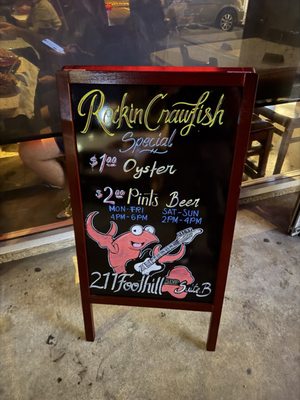 Rockin Crawfish
Special
$1.00 Oyster
$2.00 Pints Beer
MON-FRI SAT-SUN
4PM-6PM 2PM-4PM
211 Foothill Suite B